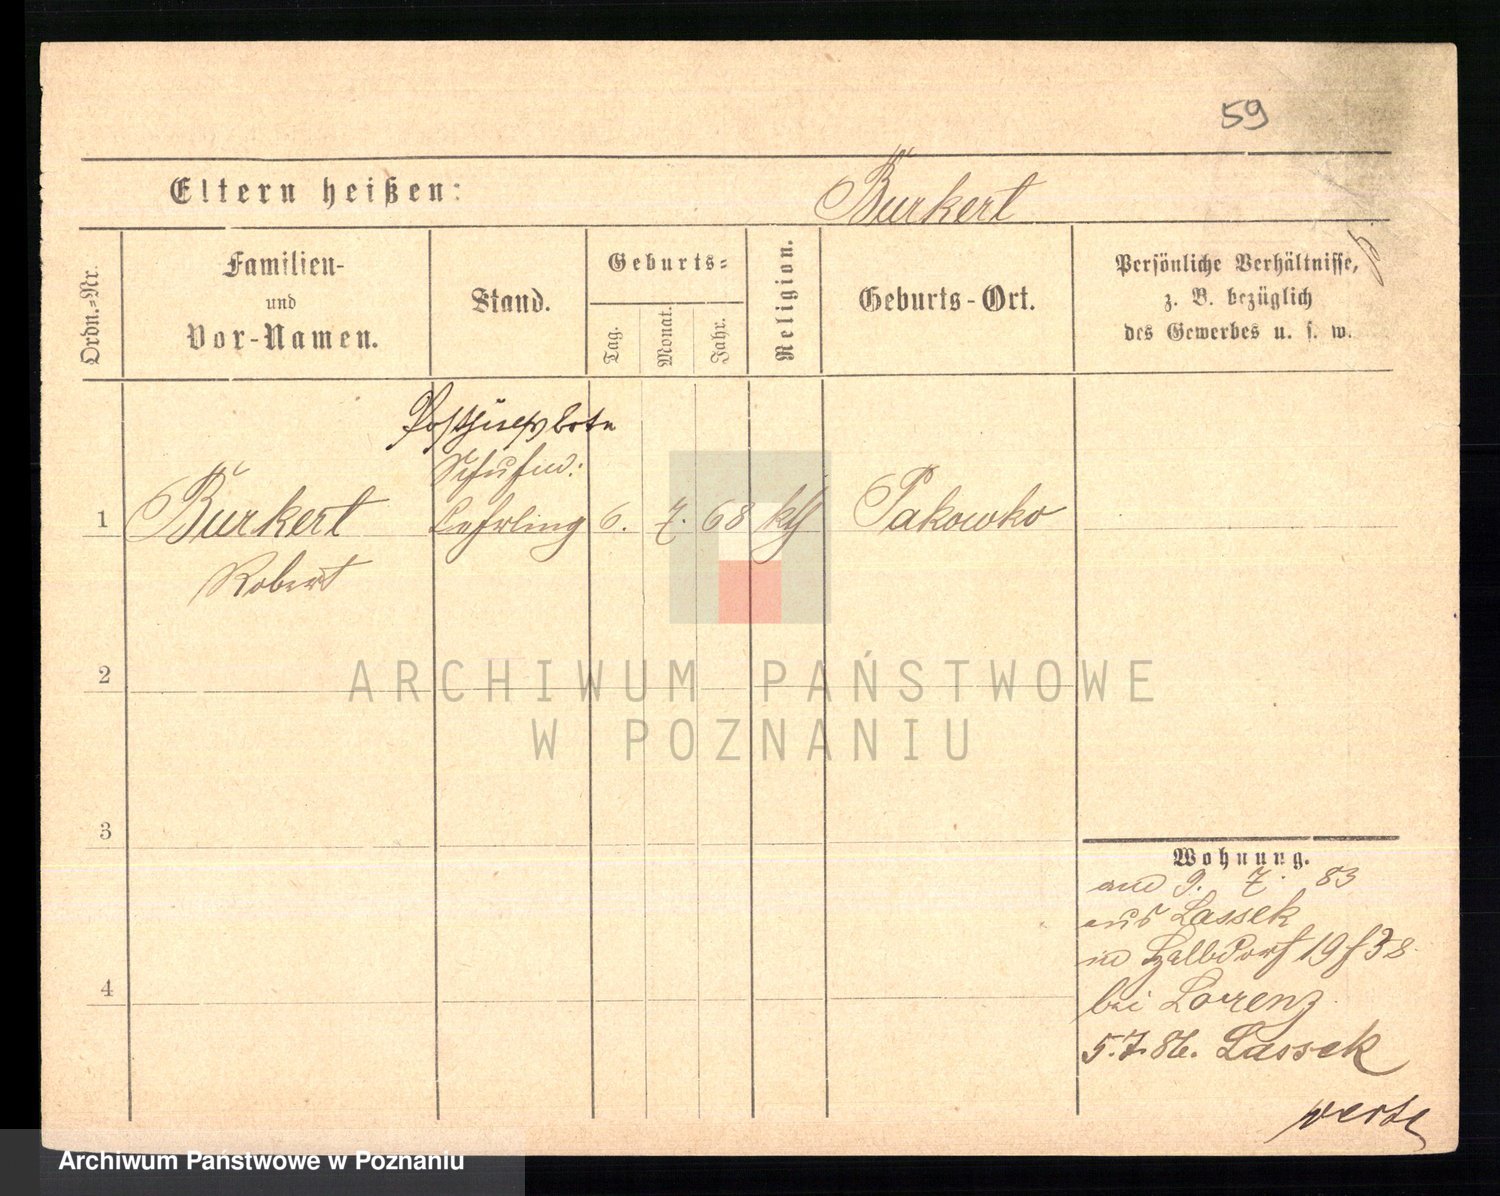 59
Eltern heißen:
Burkert
Ordn.=Nr.
Familien-
und
Vor-Namen.
Stand.
Geburts=
Tag.
Monat.
Jahr.
Religion.
Geburts-Ort.
Persönliche Verhältnisse,
z. B. bezüglich
des Gewerbes u. s. w.
1
Burkert
Robert
Lehrling
6.
7.
68
kth
Pakowko
2
3
4
Wohnung.
am 9. 7. 83
aus Lassek
in Halbdorf 19
bei Lorenz
5.7.86. Lassek
verte
ARCHIWUM PAŃSTWOWE
W POZNANIU
Archiwum Państwowe w Poznaniu